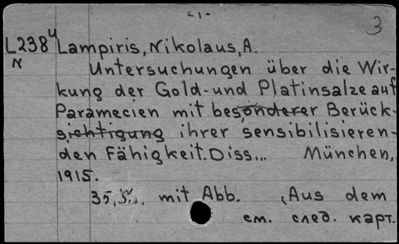 3
L238ч Lampiris, Nikolaus, A.
N
Untersuchungen über die Wir-
kung der Gold- und Platinsalze auf
Paramecien mit besonderer Berück-
sichtigung ihrer sensibilisieren-
den Fähigkeit. Diss... München,
1915.
35, S. mit Abb. (Aus dem
см. след. карт.